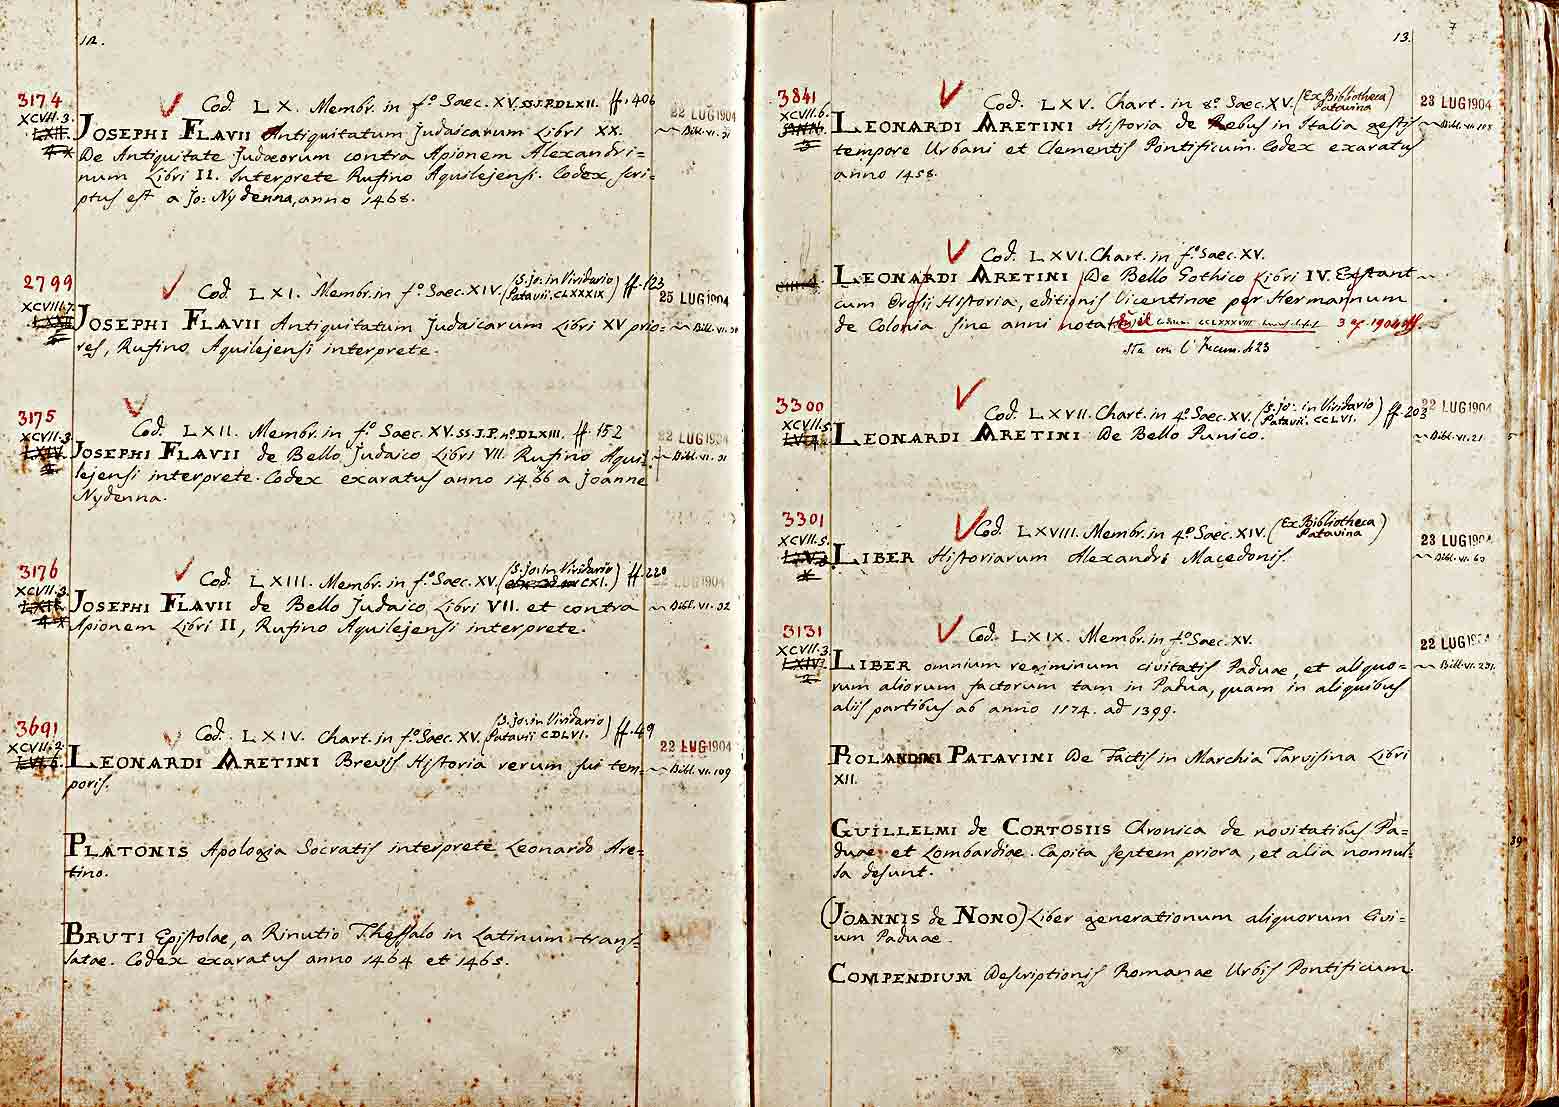 12.
3174
XCVII.3.
Cod. LX. Membr. in f.º Saec. XV. SS.J.P.DLXII. ff. 406
22 LUG 1904
JOSEPHI FLAVII Antiquitatum Judaicarum Libri XX.
Bibl. VI. 31
De Antiquitate Judæorum contra Apionem Alexandri=
num Libri II. Interprete Rufino Aquilejensi. Codex scri=
ptus est a Jo: Nydenna, anno 1468.
2799
XCVIII.7.
Cod. LXI. Membr. in f.º Saec. XIV. (S. Jo: in Viridario Patavii. CLXXXIX) ff. 123
25 LUG 1904
JOSEPHI FLAVII Antiquitatum Judaicarum Libri XV prio=
Bibl. VI. 30
res, Rufino Aquilejensi interprete.
3175
XCVII.3
Cod. LXII. Membr. in f.º Saec. XV. SS.J.P. nº DLXIII. ff. 152
22 LUG 1904
JOSEPHI FLAVII de Bello Judaico Libri VII. Rufino Aqui=
Bibl. VI. 31
lejensi interprete. Codex exaratus anno 1466 a Joanne
Nydenna.
3176
XCVII.3.
Cod. LXIII. Membr. in f.º Saec. XV. (S. Jo: in Viridario CXI.) ff. 220
22 LUG 1904
JOSEPHI FLAVII de Bello Judaico Libri VII. et contra
Bibl. VI. 32
Apionem Libri II, Rufino Aquilejensi interprete.
3691
XCVII.2.
Cod. LXIV. Chart. in f.º Saec. XV. (S. Jo: in Viridario Patavii CDLVI.) ff. 49
22 LUG 1904
LEONARDI ARETINI Brevis Historia rerum sui tem=
Bibl. VI. 109
poris.
PLATONIS Apologia Socratis interprete Leonardo Are=
tino.
BRUTI Epistolae, a Rinutio Thessalo in Latinum trans=
latae. Codex exaratus anno 1464 et 1465.
7
13.
3841
XCVII.6.
Cod. LXV. Chart. in 8º Saec. XV. (Ex Bibliotheca Patavina)
23 LUG 1904
LEONARDI ARETINI Historia de Rebus in Italia gestis
Bibl. VI.
tempore Urbani et Clementis Pontificum. Codex exaratus
anno 1458.
Cod. LXVI. Chart. in f.º Saec. XV.
LEONARDI ARETINI De Bello Gothico Libri IV. Exstant
cum Orosii Historia, editionis Vicentinae per Hermannum
de Colonia sine anni nota
3 1904
Sta con l'Incun. 423
3300
XCVII.5.
Cod. LXVII. Chart. in 4º Saec. XV. (S. Jo: in Viridario Patavii. CCLVI.) ff. 203
22 LUG 1904
LEONARDI ARETINI De Bello Punico.
Bibl. VI. 21
3301
XCVII.5.
Cod. LXVIII. Membr. in 4º Saec. XIV. (Ex Bibliotheca Patavina)
23 LUG 1904
LIBER Historiarum Alexandri Macedonis.
Bibl. VI. 60
3131
XCVII.3.
Cod. LXIX. Membr. in f.º Saec. XV.
22 LUG 1904
LIBER omnium regiminum civitatis Paduae, et aliquo=
Bibl. VI. 231.
rum aliorum factorum tam in Padua, quam in aliquibus
aliis partibus ab anno 1174. ad 1399.
ROLANDINI PATAVINI De Factis in Marchia Tarvisina Libri
XII.
GUILLELMI de CORTOSIIS Chronica de novitatibus Pa=
duae et Lombardiae. Capita septem priora, et alia nonnul=
la desunt.
(JOANNIS de NONO) Liber generationum aliquorum Civi=
um Paduae.
COMPENDIUM Descriptionis Romanae Urbis Pontificum.
39